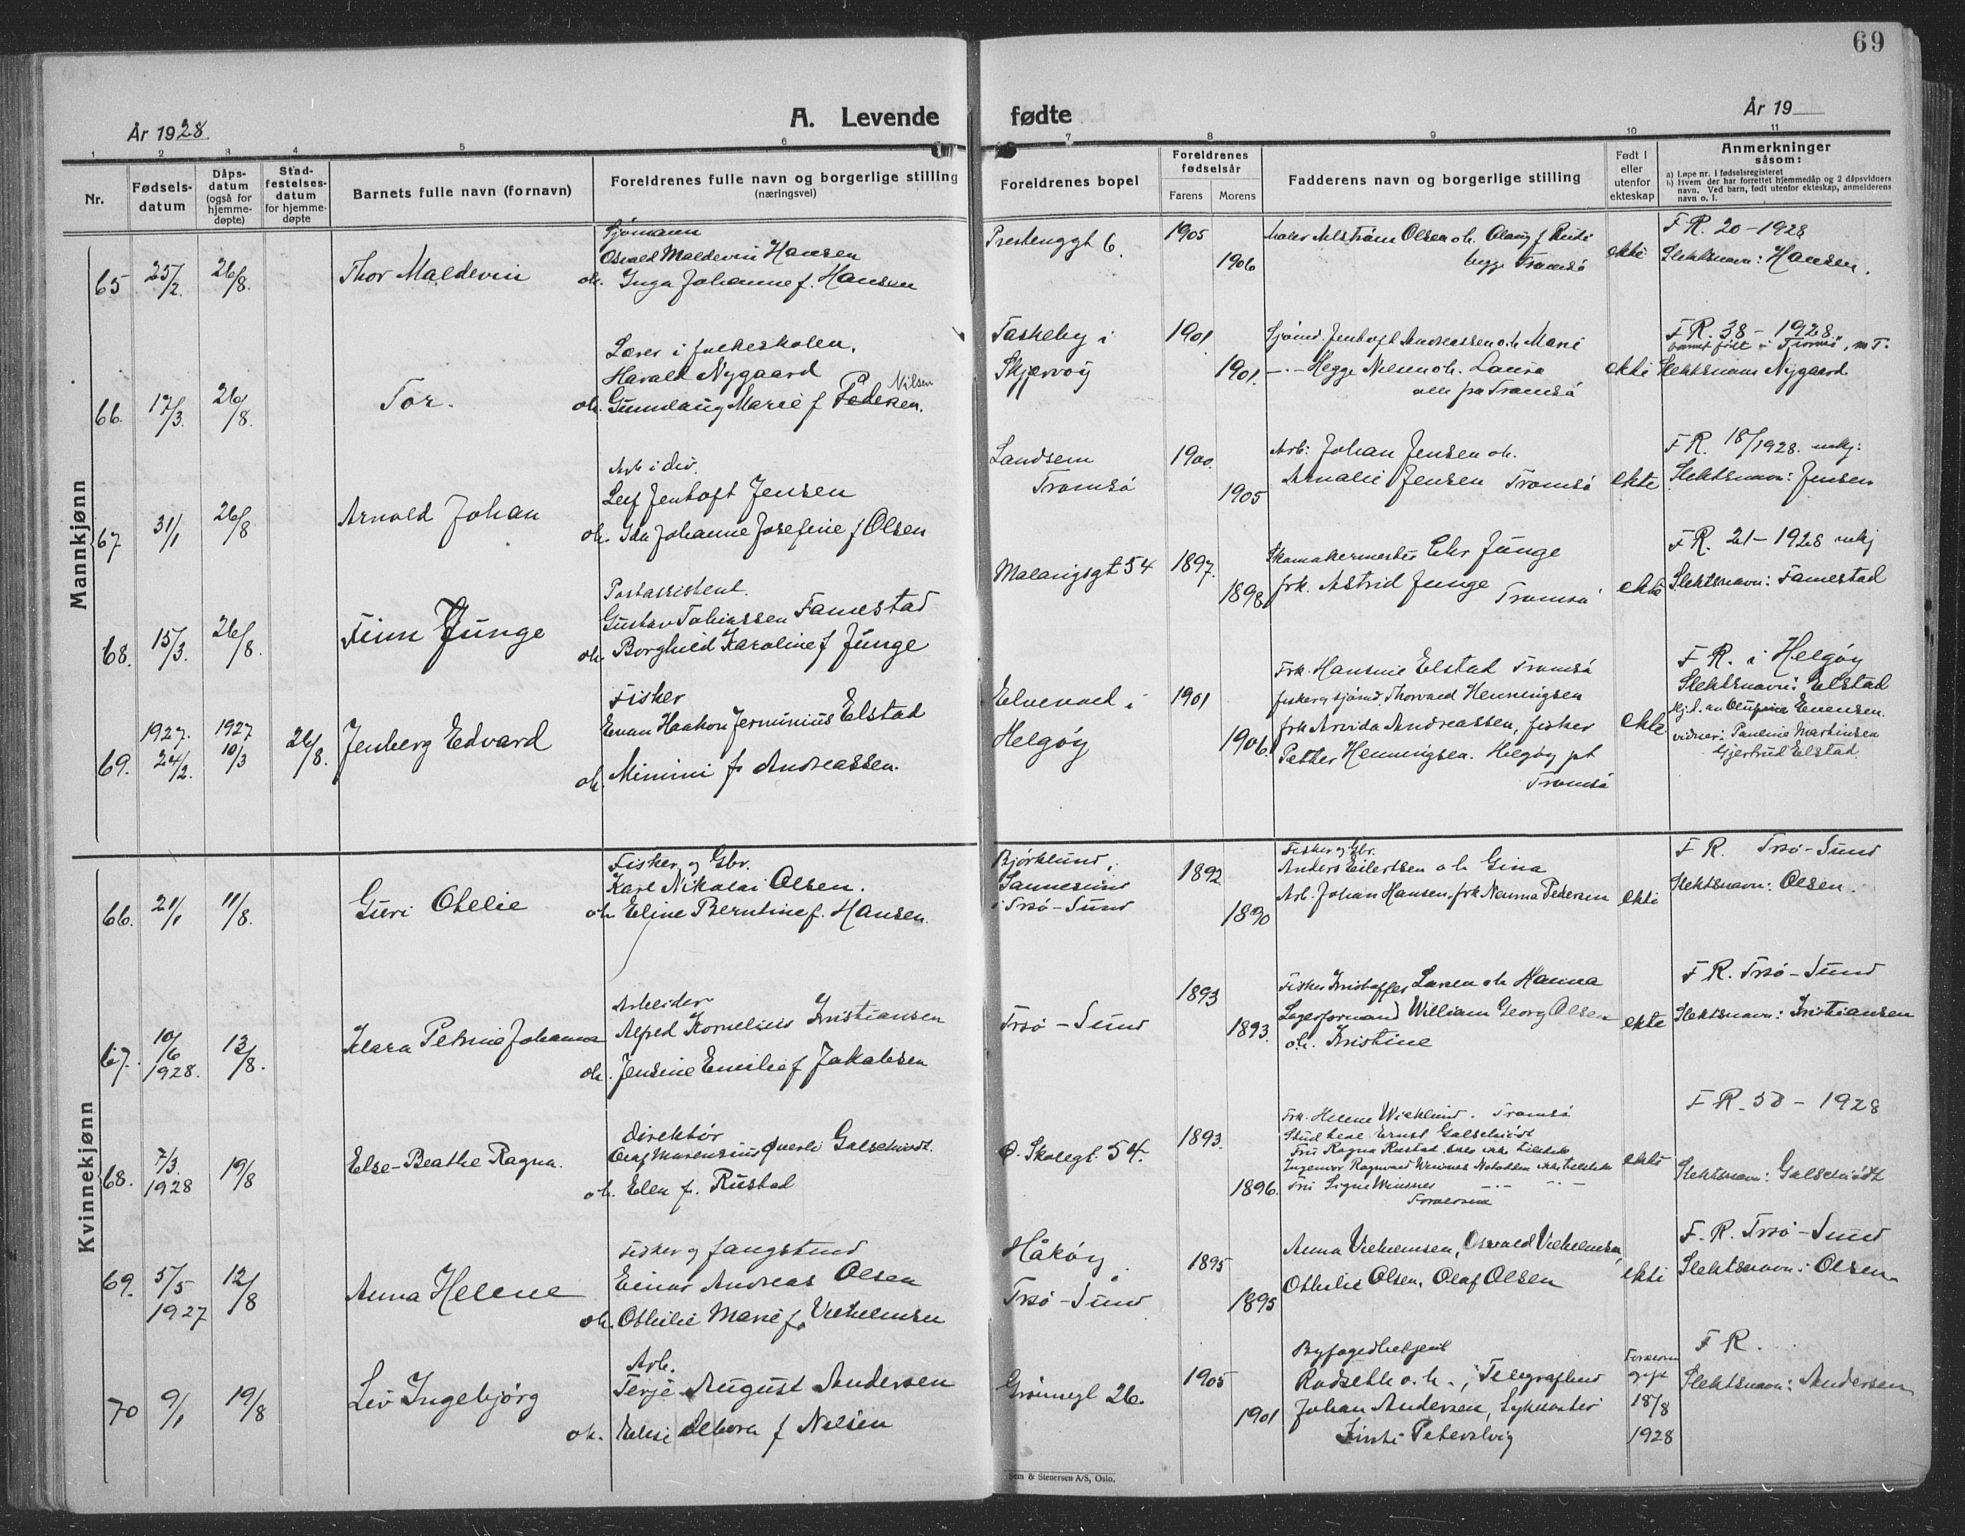 69
År 1928.
A. Levende fødte
År 19
1 2 3 4 5 6 7 8 9 10 11
Nr.
Fødsels-
datum
Dåps-
datum
(også for
hjemme-
døpte)
Stad-
festelses-
datum
for hjemme-
døpte
Barnets fulle navn (fornavn)
Foreldrenes fulle navn og borgerlige stilling
(næringsvei)
Foreldrenes bopel
Foreldrenes
fødselsår
Farens Morens
Fadderens navn og borgerlige stilling
Født i
eller
utenfor
ekteskap
Anmerkninger
såsom:
a) Løpe nr. i fødselsregisteret
b) Hvem der har forrettet hjemmedåp og 2 dåpsvidners
navn. Ved barn, født utenfor ekteskap, anmelderens
navn o. l.
Mannkjønn
65 25/2 26/8 Thor Maldevin
Sjømann
Osvald Maldevin Hansen
oh. Inga Johanne f. Hansen
Prestenggt 6.
1905
1906
Olsen oh. Olaug f.
begge Tromsø
ekte
F R. 20-1928
Slektsnavn: Hansen.
66. 17/3 26/8 Tor.
Lærer i folkeskolen.
Harald Nygaard
Nilsen
oh. Gunnlaug Marie f Pedersen.
Taskeby i
Skjervøy
1901
1901.
Sjømd. Jentoft Andreassen oh Marie
-"- Hegge Nilsen oh. Laura
alle fra Tromsø
ekte
F R. 38 - 1928.
barnet født i Tromsø,
Slektsnavn Nygaard
67 31/1 26/8 Arnold Johan
Arb i div.
Leif Jentoft Jensen
oh. Ida Johanne Josefine f Olsen
Landsem
Tromsø
1900.
1905
Arb: Johan Jensen oh.
Amalie Jensen Tromsø
ekte
F R. 18/1928.
Slektsnavn: Jensen
68. 15/3 26/8. Finn Junge
Postassistent.
Gustav Tobiassen Famestad
oh. Borghild Karoline f Junge
Malangsgt 54
1897.
1898
Skomakermester Chr Junge
frk. Astrid Junge Tromsø
ekte
F R. 21-1928
Slektsnavn: Famestad
69. 1927. 24/2. 1927 10/3 26/8. Jenberg Edvard
Fisker
Evan Haakon Jerminius Elstad
oh. Mimmi f. Andreassen.
Elvevoll i
Helgøy
1901
1906.
Frk. Hansine Elstad Tromsø
fisker og sjømd. Thorvald Henningsen
frk Arvida Andreassen, fisker
Petter Henningsen. Helgøy pt
Tromsø
ekte
F R. i Helgøy
Slektsnavn: Elstad
hj.d. av Olufine Evensen.
vidner: Pauline Martinsen
Gjertrud Elstad.
Kvinnekjønn
66. 21/1 11/8. Guri Otelie
Fisker og Gbr.
Karl Nikolai Olsen.
oh Eline Berntine f. Hansen.
Bjørklund,
Sannesund
i Trsø-Sund
1892
1890
Fisker og Gbr.
Anders Eilertsen oh Gina
Arb. Johan Hansen, frk Nanna Pedersen
ekte
F R. Trsø-Sund
Slektsnavn: Olsen.
67. 10/6 1928. 13/8. Klara Petrine Johanna
Arbeider
Alfred Kornelius Kristiansen
oh. Jensine Emilie f Jakobsen
Trsø - Sund
1893
1893.
Fisker Kristoffer Larsen oh Hanna
Lagerformand William Georg Olsen
oh. Kristine
ekte
F R. Trsø-Sund
Slektsnavn: Kristiansen
68. 7/3. 1928 19/8 Else-Beathe Ragna.
Direktør
Olaf Marensius Qverli Galschiødt.
oh. Ellen f. Rustad
Ø. Skolegt. 54.
1893
1896.
Frk. Helene Wicklund. Tromsø
Stud Ernst Galschiødt
Fru Ragna Rustad, Oslo ikke tilstede
Ingeniør Ragnvald Winsnes Notodden ikke tilstede
Fru Signe Winsnes -"- -"-
ekte
F R. 58 - 1928
Slektsnavn: Galschiødt
69. 5/5 1927 12/8 Anna Helene
Fisker og fangstmd
Einar Andreas Olsen
oh. Othilie Marie f. Vilhelmsen
Håkøy
Trsø-Sund
1895
1895
Anna Vilhelmsen, Osvald Vilhelmsen
Othilie Olsen, Olaf Olsen
ekte
F. R. Trsø-Sund
Slektsnavn: Olsen
70 9/1 19/8 Liv Ingebjørg
Arb.
Terje August Andersen
oh. Elise Debora f Nilsen
Grønnegt 26.
1905
1901
Byfogedbetjent
Rodseth o.h., Telegrafbud
Johan Andersen,
Petersvig
gift
18/8
1928
F R.
Slektsnavn: Andersen
Sem & Stenersen A/S, Oslo.